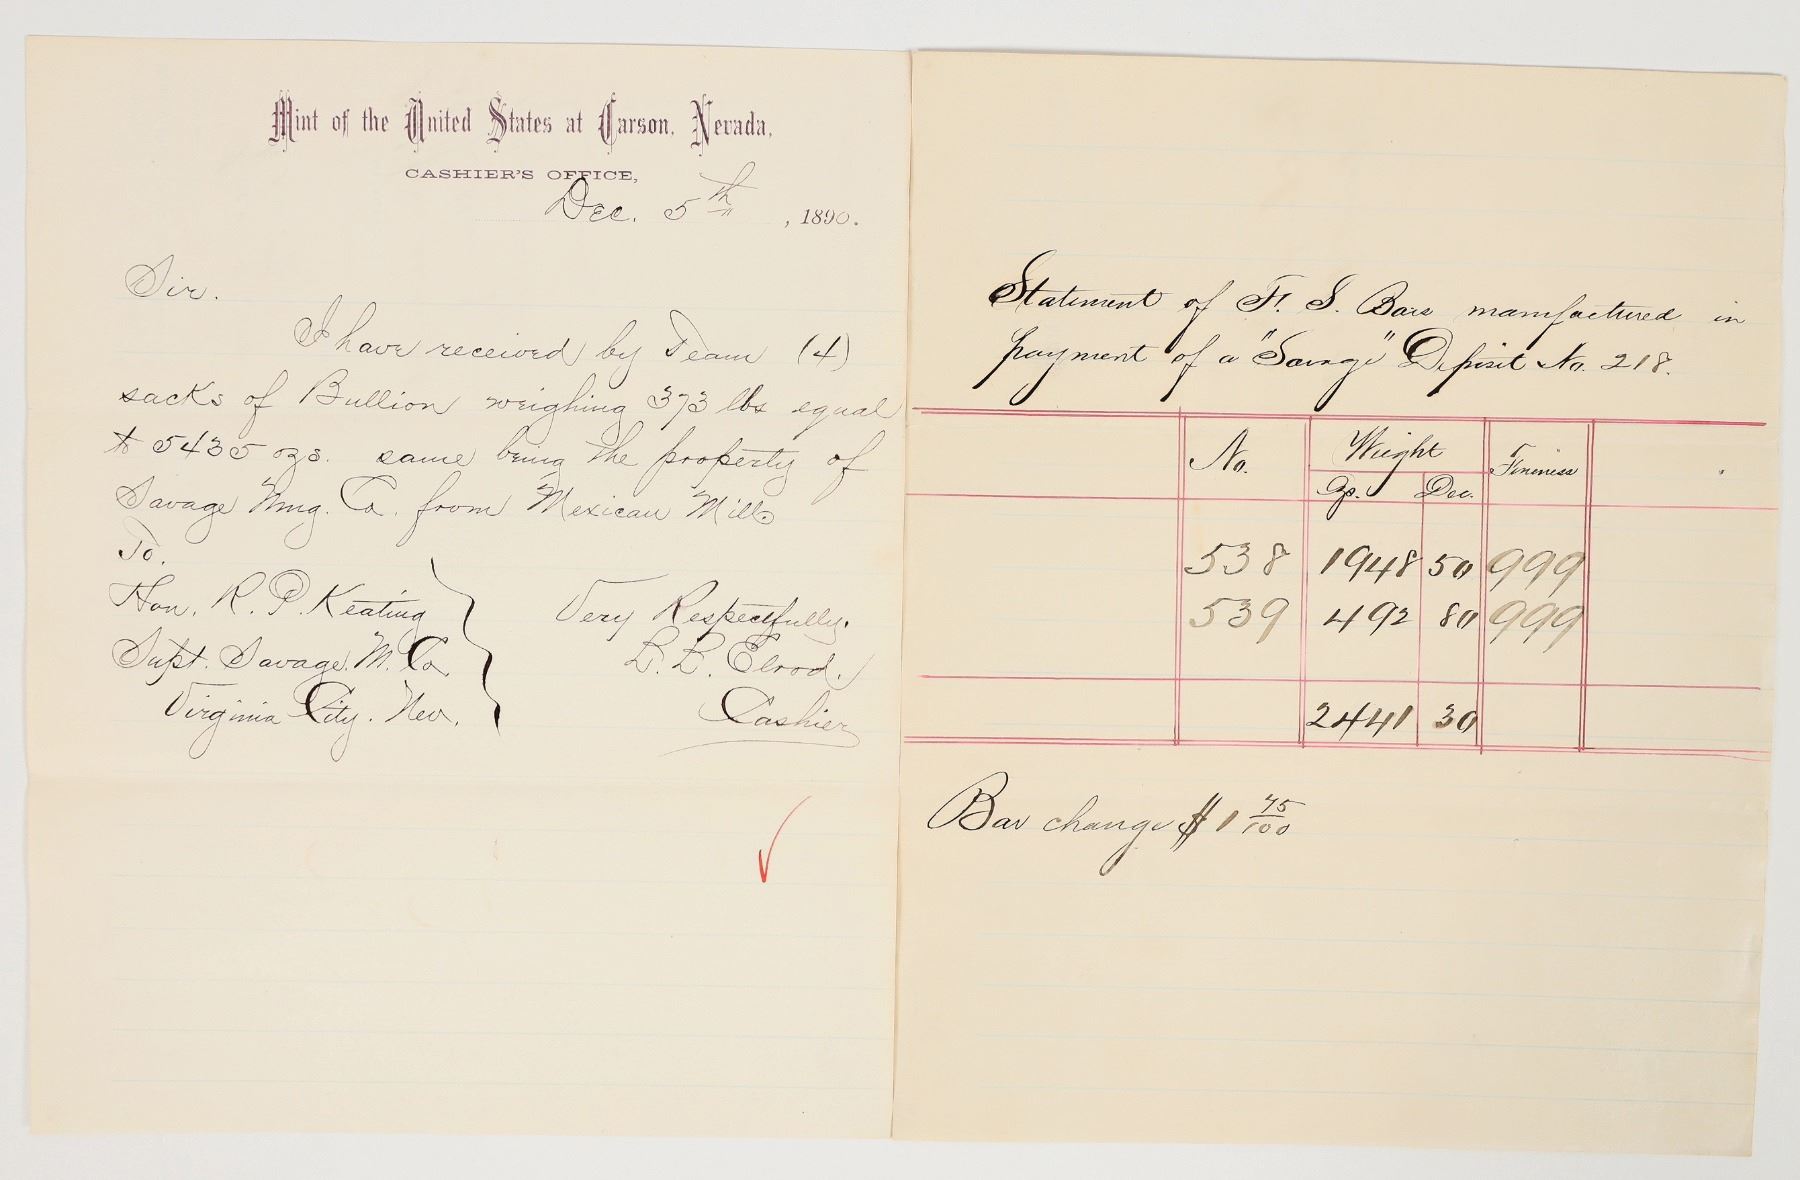 Mint of the United States at Carson, Nevada,
CASHIER'S OFFICE,
Dec. 5th, 1890.
Sir.
I have received by Team (4)
sacks of Bullion weighing 373 lbs equal
to 5435 ozs. same being the property of
Savage Mng. Co. from Mexican Mill
To.
Hon. R. P. Keating
Supt. Savage M. Co.
Virginia City. Nev.
Very Respectfully.
Elrod.
Cashier
Statement of F. S. Bars manufactured in
payment of a "Savage" Deposit No. 218.
No. Weight Fineness
Oz. Dec.
538 1948 50 999
539 492 80 999
2441 30
Bar change $1 75/100